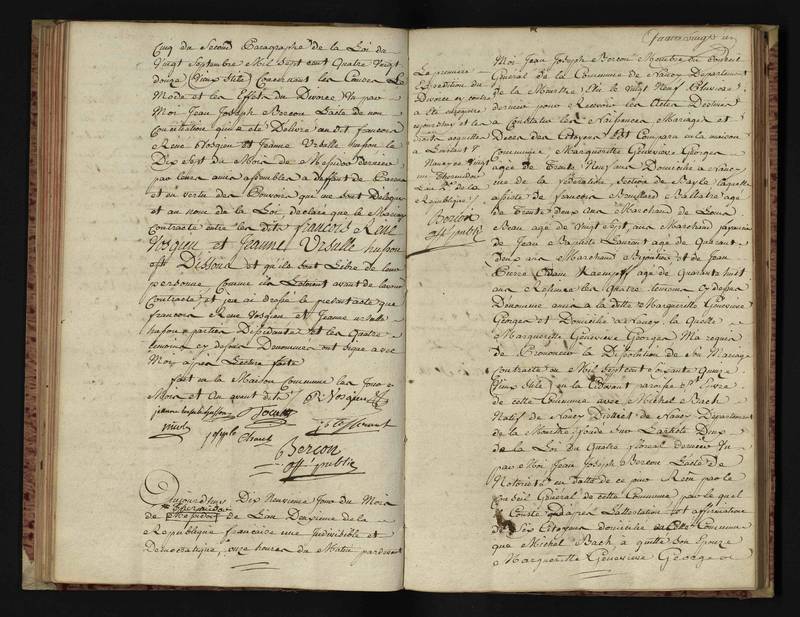 Cinq du Second Paragraphe de la Loi du
Vingt Septembre Mil Sept cent Quatre Vingt
douze (Vieux Stile) Concernant les Causes Le
Mode et les Effets du Divorce, Vu par
Moi Jean Joseph Bercon L'acte de non
Conciliation qui a été Délivré audit françois
René Vosgien et Jeanne Ursulle husson le
Dix Sept du Mois de Messidor dernier
par leurs amis assemblés a deffaut de Parens
et en vertu des Pouvoirs qui me sont Délégué
et au nom de la Loi déclaré que le Mariage
Contracté entre les dits françois René
Vosgien et Jeanne Ursulle husson
est Dissout et qu'ils sont Libre de leur
personne Comme ils L'étoient avant de l'avoir
Contracté et j'en ai dressé le présent acte que
françois René Vosgien et Jeanne ursulle
husson parties Dissidante et les Quatre
temoins cy dessus Denommés ont signé avec
Moi après Lecture faite
fait en la Maison Commune les Jour
Mois et An avant dits P. Vosgien
Bercon
off. public
Aujourd'hui Dix Neuvieme Jour du Mois
Thermidor
de Messidor de L'an Deuxieme de la
Republique francaise une Indivisible et
Democratique, onze heures du Matin pardevant
Quatre vingt un
La premiere
Expedition du
Divorce cy contre
a été enregistrée
Nancy ce Vingt
un Thermidor
L'an 2e de la
Republique
Bercon
off. public
Moi Jean Joseph Bercon Membre du Conseil
Général de la Commune de Nancy Departement
de la Meurthe, Elu le Vingt Neuf Pluviose
dernier pour Recevoir les Actes Destinés
a Constater les Naissances Mariages et
Deces des Citoyens Est Comparu en la maison
Commune Marguerite Genevieve Georges
agée de Trente Neuf ans Domiciliée a Nancy
rue de la Féderation, Section de Bayle laquelle
assisté de françois Bouillard agé
de Trente Deux ans Marchand de Louis
Beau agé de Vingt Sept ans Marchand
de Jean Baptiste Laurent age de Quarant
Deux ans Marchand Bijoutier et de Jean
Pierre Adam age de Quarante huit
ans les temoins cy dessus
Dénommé amis a la ditte Marguerite Genevieve
Georges et Domiciliés a Nancy, la Quelle
Marguerite Genevieve Georges Ma requis
de Prononcer la Dissolution de son Mariage
Contracté en Mil Sept cent Soixante Quinze
(Vieux Stile) en la Cidevant paroisse St
de cette Commune avec Michel Bach
Natif de Nancy District de Nancy Departement
de la Meurthe fondé Sur L'article Deux
de la Loi du Quatre floreal dernier Vu
par Moi Jean Joseph Bercon L'acte de
Notoriété en datte de ce jour Reçu par le
Conseil Général de cette Commune par le quel
il Conste d'après L'attestation et affirmation
de Six Citoyens domiciliés en Cette Commune
que Michel Bach a quitté son Epouze
Marguerite Genevieve Georges